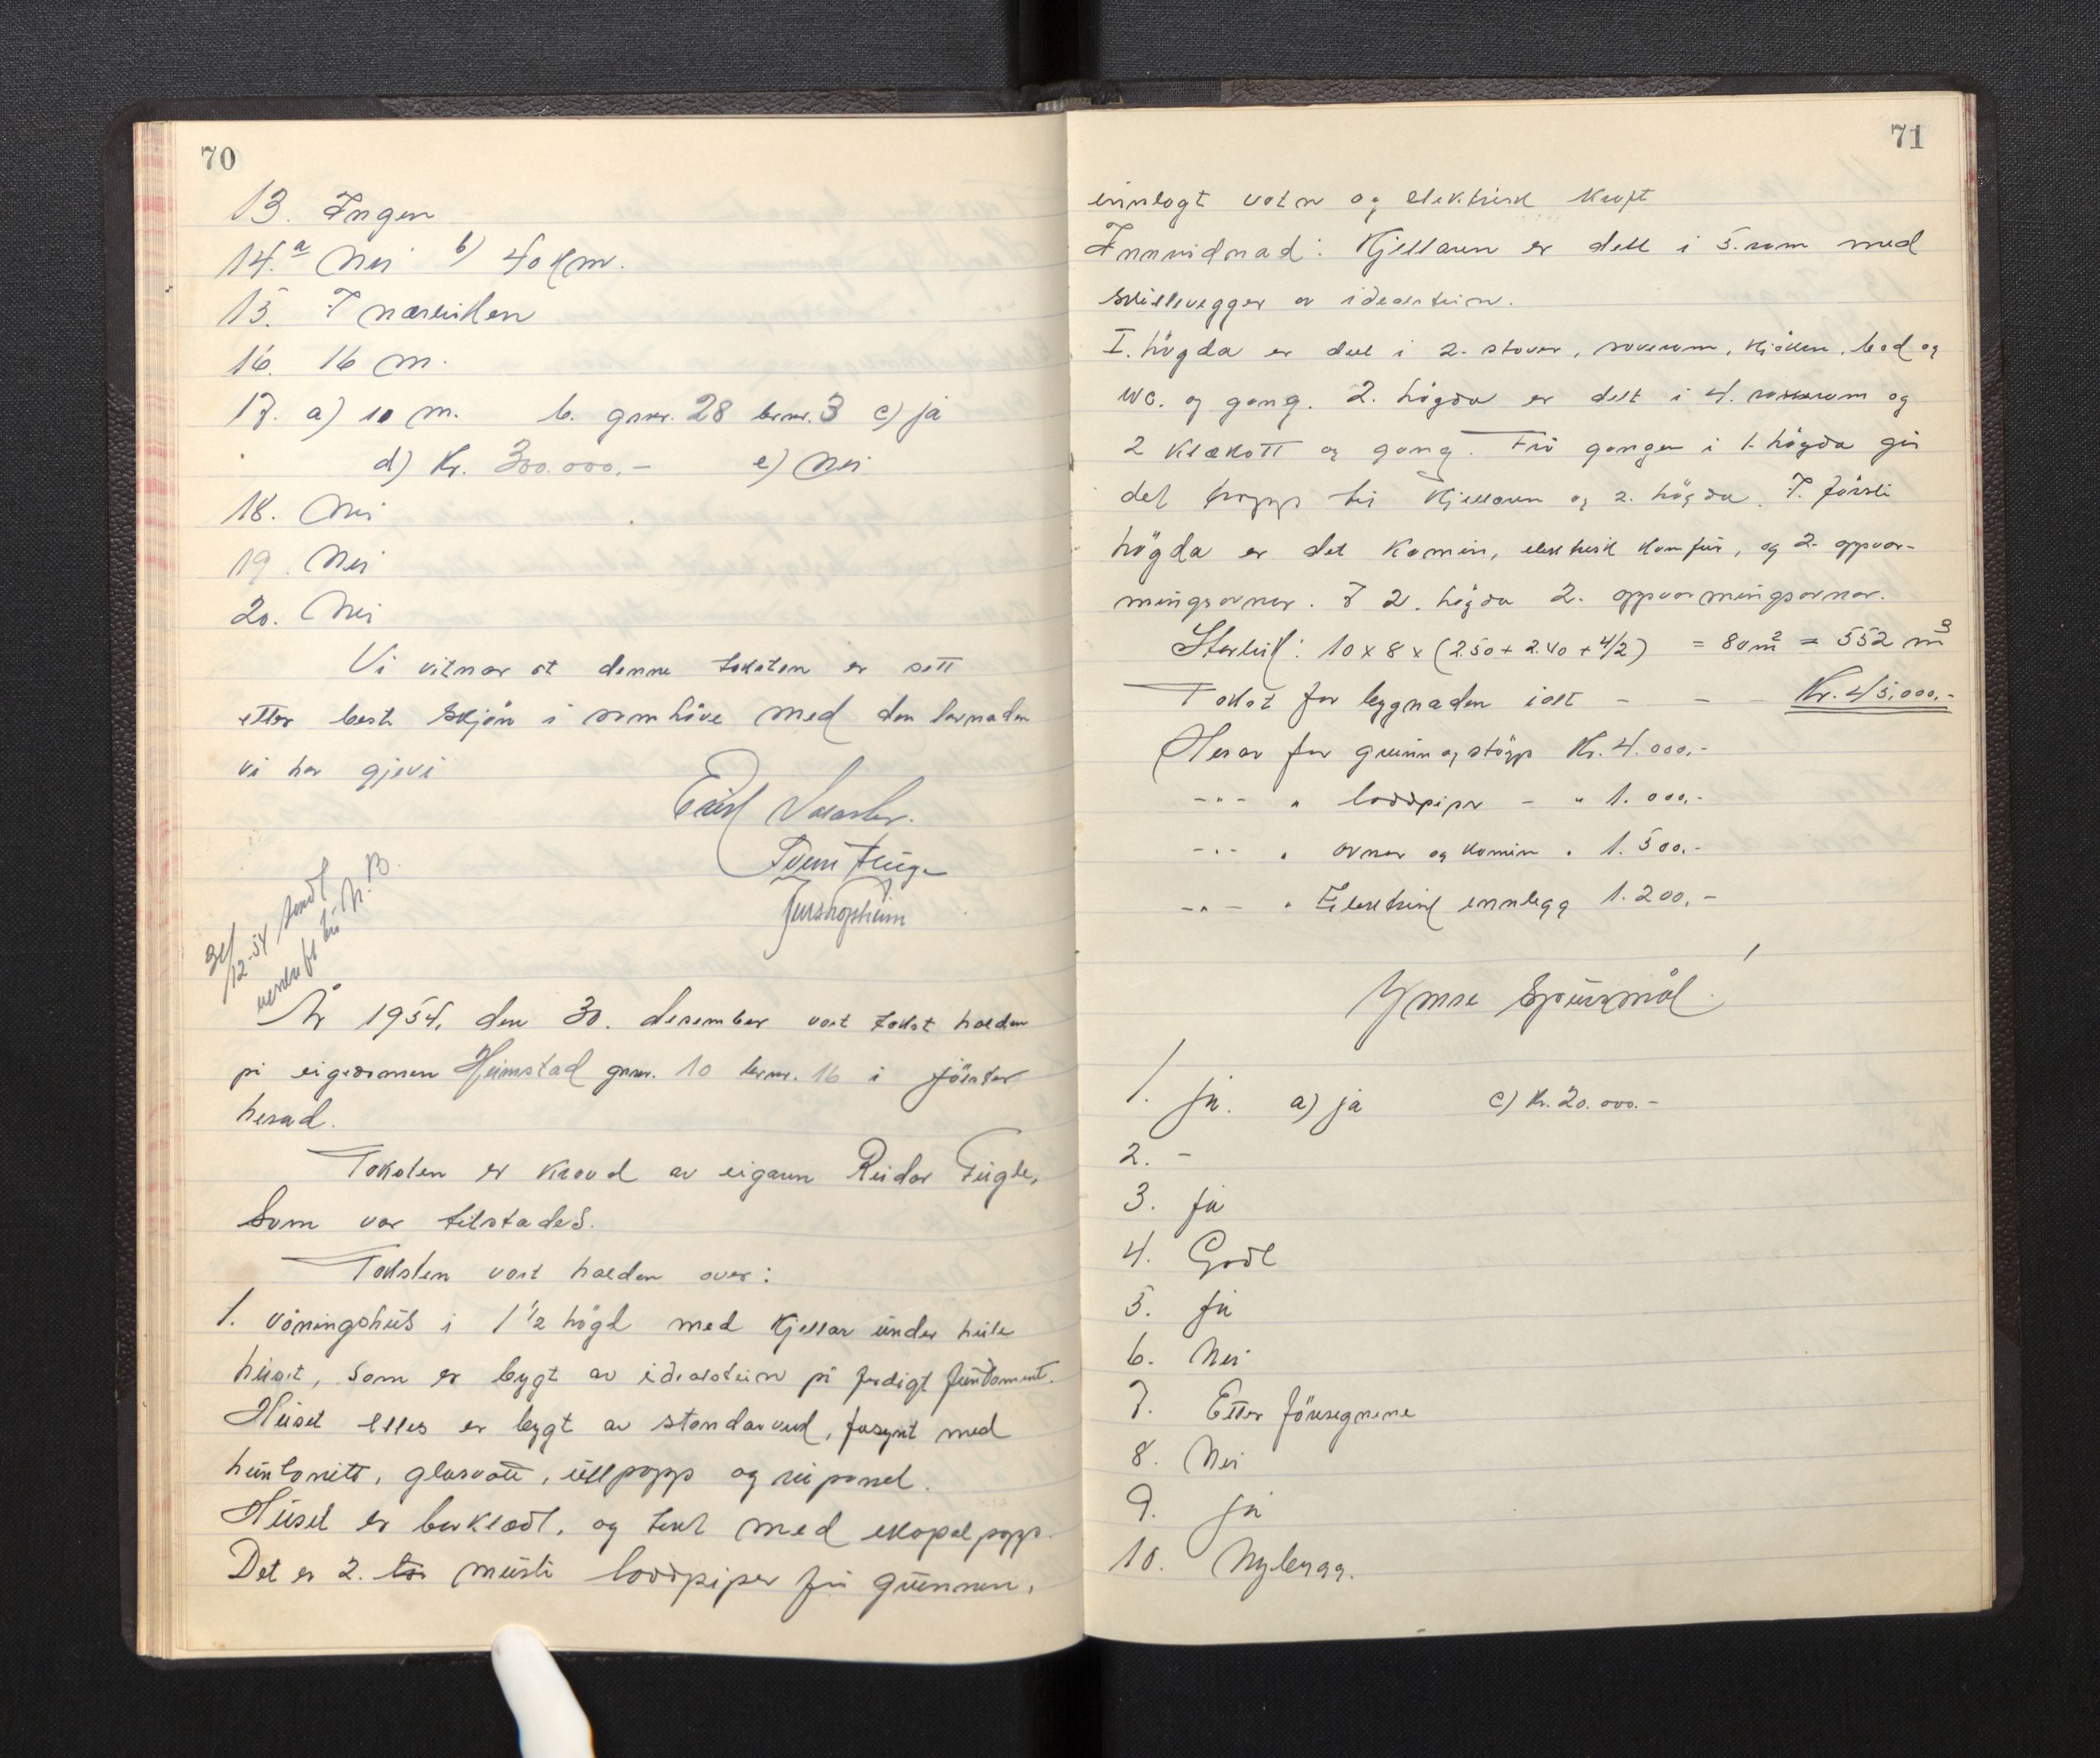 70
13. Ingen
14. a Nei b) 40 km.
15. I nærleiken
16. 16 m.
17. a) 10 m. b. gnr. 28 brnr. 3 c) ja
d) Kr. 300.000,- e) Nei
18. Nei
19. Nei
20. Nei
Vi vitnar at denne taksten er sett
etter beste skjøn i samhöve med den lovnaden
vi har gjevi
Svein Fugle
30/12-54 sendt
utskrift til N.B.
År 1954, den 30. desember vart takst halden
på eigedomen Heimstad gnr. 10 brnr. 16 i Jölster
herad.
Taksten er kravd av eigaren Reidar Fugle,
som var tilstades.
Taksten vart halden over:
1. våningshus i 1 1/2 högd med kjellar under heile
huset, som er bygt av idealstein på ferdigt fundament.
Huset elles er bygt av standarverk, forsynt med
huntonitt, glasvatt, ullpapp og ru panel.
Huset er borklædt, og tekt med ekapalpapp.
Det er 2. murte loddpiper frå grunnen,
71
innlagt vatn og elektrisk kraft
Innreidnad: Kjellaren er delt i 5. rom med
skillevegger av idealstein.
I. högda er delt i 2. stover, soverom, kjöken, bad og
WC. og gang. 2. högda er delt i 4. soverom og
2 klækott og gang. Frå gangen i 1. högda går
det trapp til kjellaren og 2. högda. I. försti
högda er det kamin, elektrisk komfur, og 2. oppvar-
mingsovnar. I 2. högda 2. oppvarmingsovnar.
Storleik: 10 x 8 x (2.50 + 2.40 + 4/2) = 80 m2 = 552 m3
Takst for bygnaden ialt - - Kr. 45,000.-
Herav for grunn og stöyp Kr. 4.000,-
-"- " loddpiper - " 1.000,-
-"- " ovnar og kamin " 1.500,-
-"- " Elektrisk innlegg 1.200,-
Ymse Spursmål.
1. ja. a) ja c) Kr. 20.000.-
2. -
3. ja
4. Godt
5. ja
6. Nei
7. Etter föresegnene
8. Nei
9. ja
10. Nybygg.